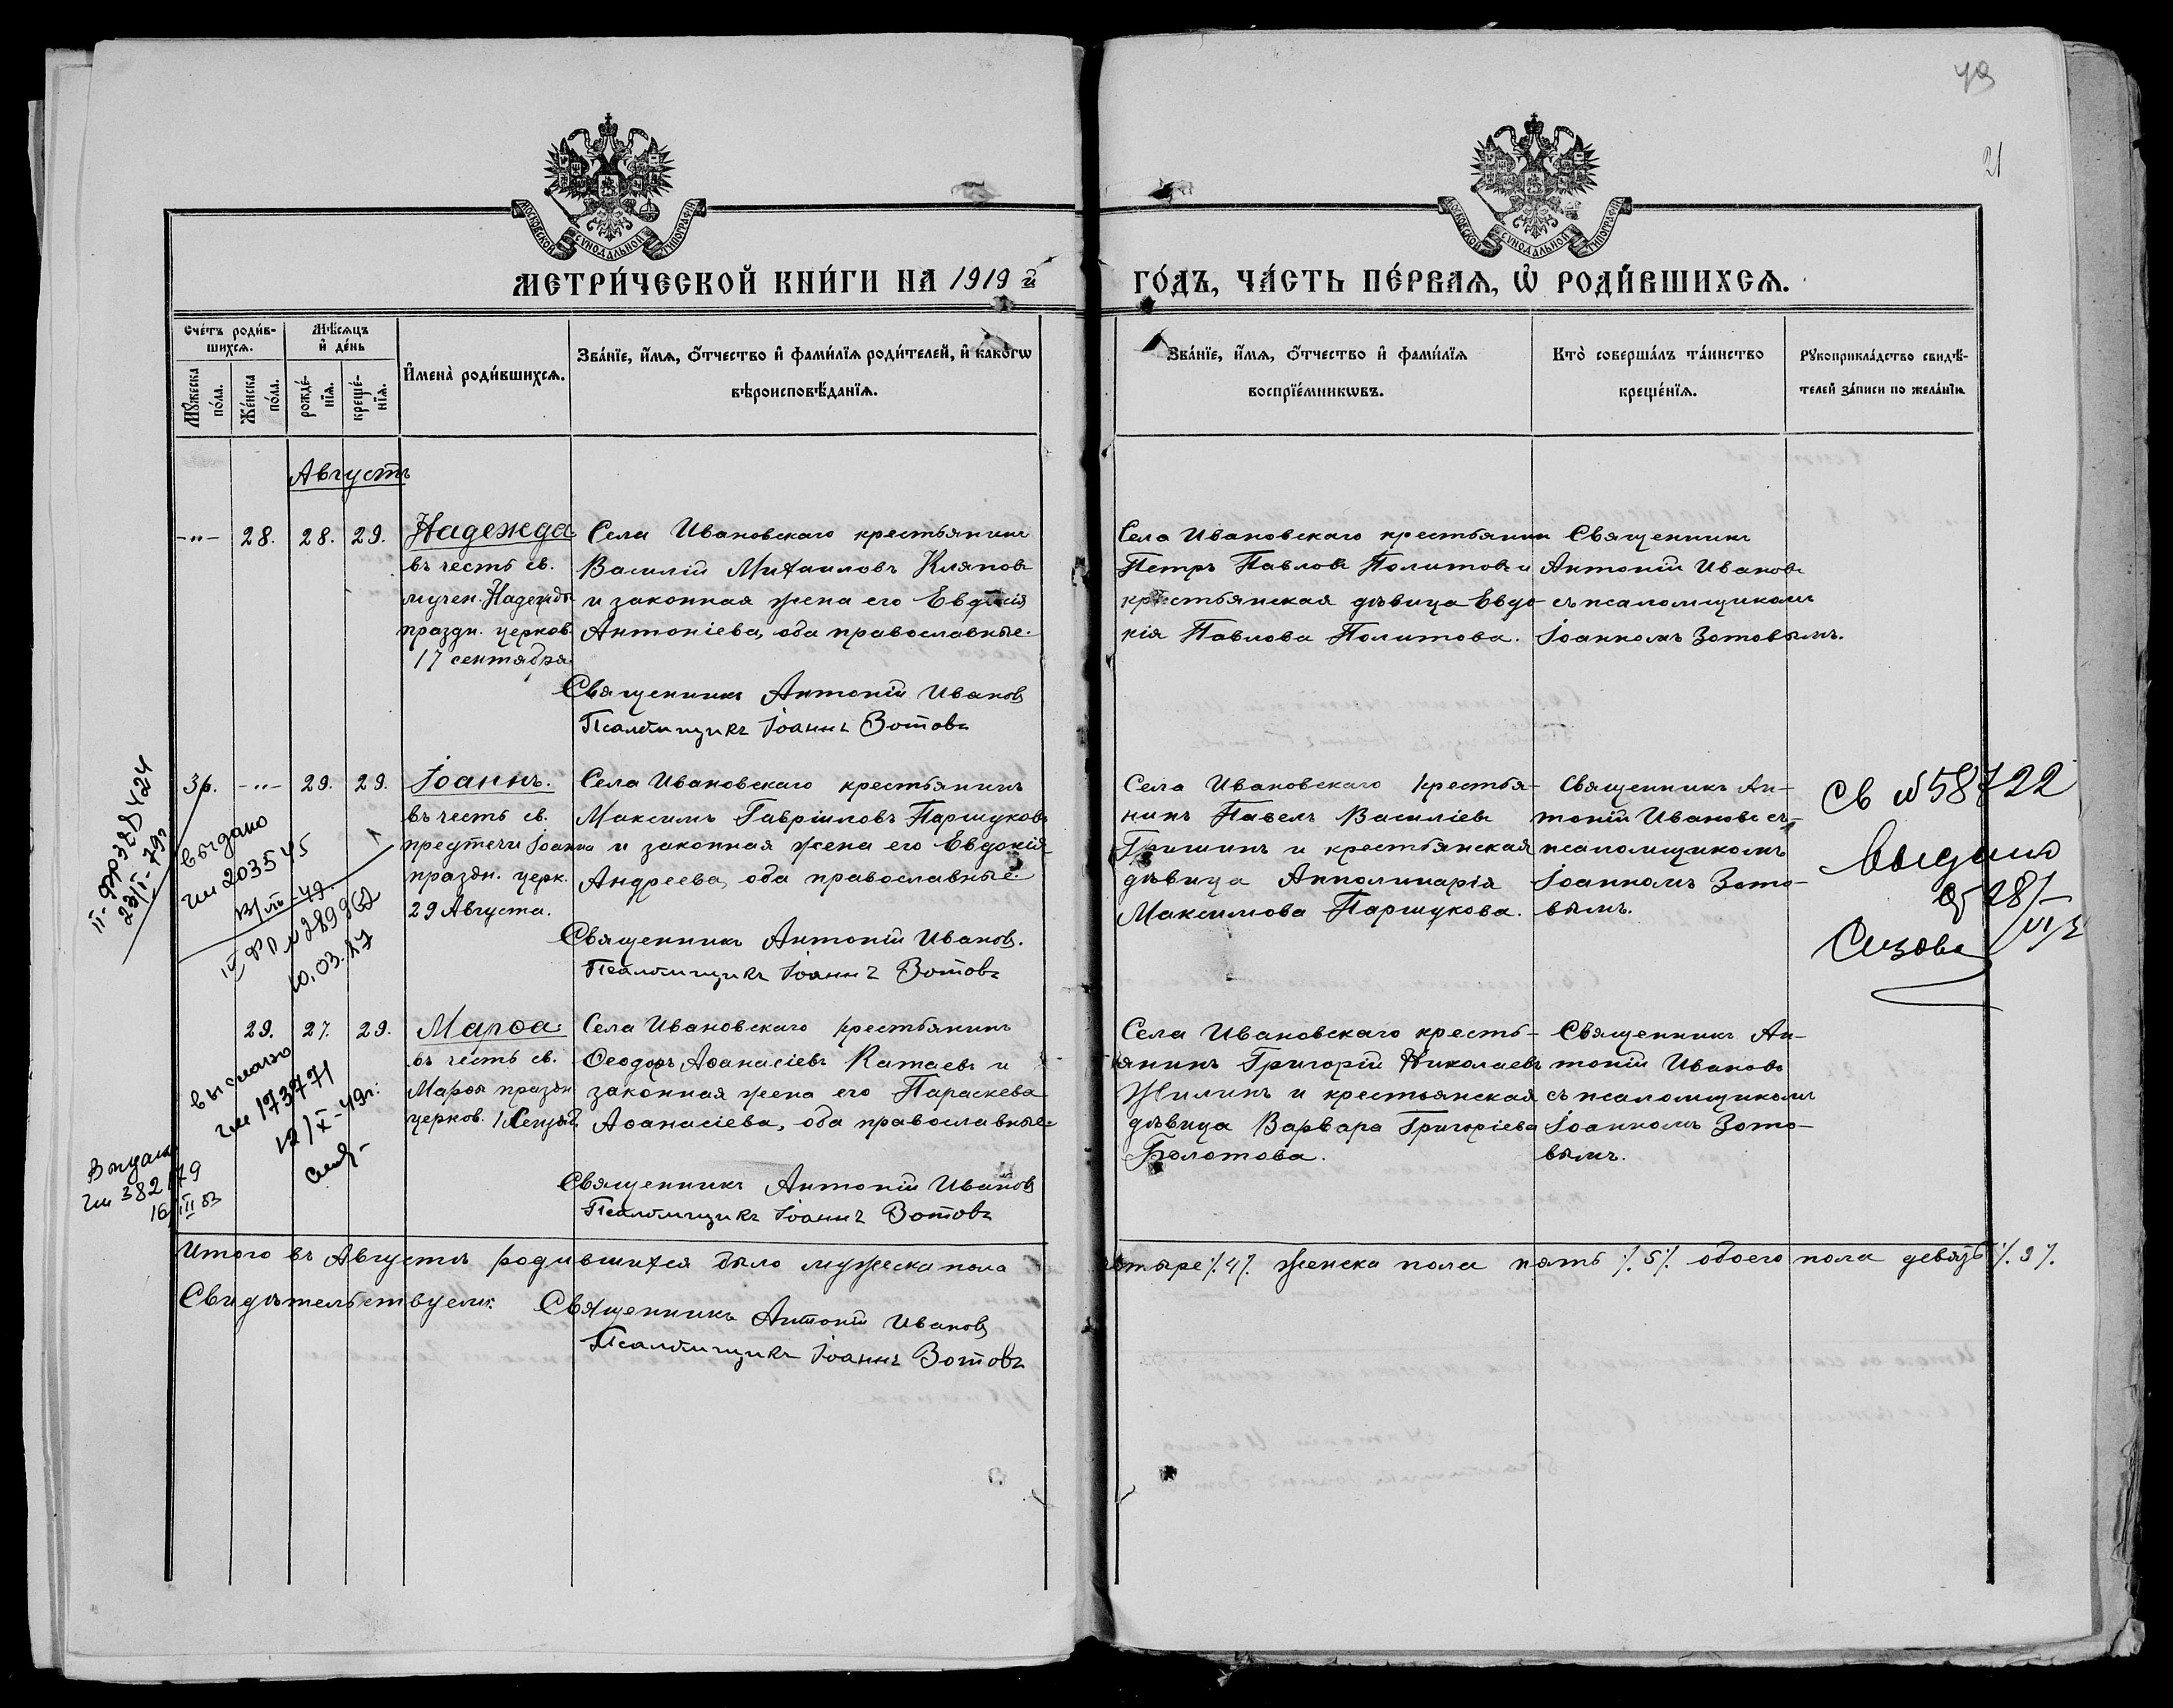 49
21
МОСКОВСКОЙ СѴНОДАЛЬНОЙ ТИПОГРАФІИ
МОСКОВСКОЙ СѴНОДАЛЬНОЙ ТИПОГРАФІИ
МЕТРИ́ЧЕСКОЙ КНИ́ГИ НА 1919 й
ГО́ДЪ, ЧА́СТЬ ПЕ́РВАЯ, Ѡ҆ РОДИ́ВШИХСЯ.
Сче́тъ роди́в-
шихся.
Мѣ́сяцъ
и҆ де́нь
Му́жеска
по́ла.
Же́нска
по́ла.
рожде́-
нїя.
креще́-
нїя.
И҆мена̀ роди́вшихся.
Зва́нїе, и҆́мя, ѻ҆́тчество и҆ фами́лїя роди́телей, и҆ како́гѡ
вѣроисповѣ́данїя.
Зва́нїе, и҆́мя, ѻ҆́тчество и҆ фами́лїя
воспрїе́мникѡвъ.
Кто̀ соверша́лъ та́инство
креще́нїя.
Рукоприкла́дство свидѣ́-
телей за́писи по жела́нїю
Августъ
-"- 28. 28. 29. Надежда
въ честь св.
мучен. Надежды
праздн. церков.
17 сентября
Села Ивановскаго крестьянинъ
Василій Михаиловъ Кляповъ
и законная жена его Евдокія
Антоніева, оба православные.
Священникъ Антоній Ивановъ
Псаломщикъ Іоаннъ Зотовъ
Села Ивановскаго крестьянин
Петръ Павловъ Политовъ и
крестьянская дѣвица Евдо-
кія Павлова Политова.
Священникъ
Антоній Ивановъ
съ псаломщикомъ
Іоанномъ Зотовымъ.
-"- 29. 29. Іоаннъ.
въ честь св.
предтечи Іоанна
праздн. церк.
29 Августа.
Села Ивановскаго крестьянинъ
Максимъ Гавріиловъ Паршуковъ
и законная жена его Евдокія
Андреева, оба православные.
Священникъ Антоній Ивановъ.
Псаломщикъ Іоаннъ Зотовъ
Села Ивановскаго крестья-
нинъ Павелъ Василіевъ
Гришинъ и крестьянская
дѣвица Апполинарія
Максимова Паршукова.
Священникъ Ан-
тоній Ивановъ съ
псаломщикомъ
Іоанномъ Зото-
вымъ.
Св № 58722
выдано
Сизова
выдано
203545
10.03.
29. 27. 29. Марѳа.
въ честь св.
Марѳы праздн
церков. 1 Сентяб.
Села Ивановскаго крестьянинъ
Ѳеодоръ Аѳанасіевъ Катаевъ и
законная жена его Параскева
Аѳанасіева, оба православные.
Священникъ Антоній Ивановъ
Псаломщикъ Іоаннъ Зотовъ
Села Ивановскаго кресть-
янинъ Григорій Николаевъ
Жилинъ и крестьянская
дѣвица Варвара Григоріева
Болотова.
Священникъ Ан-
тоній Ивановъ
съ псаломщикомъ
Іоанномъ Зото-
вымъ.
выслано
173771
12/IX-49г.
Выдано
38279
16/III 83
Итого въ Августѣ родившихся было мужеска пола четыре /.4/. женска пола пять /.5/. обоего пола девять /.9/.
Свидѣтельствуемъ: Священникъ Антоній Ивановъ
Псаломщикъ Іоаннъ Зотовъ